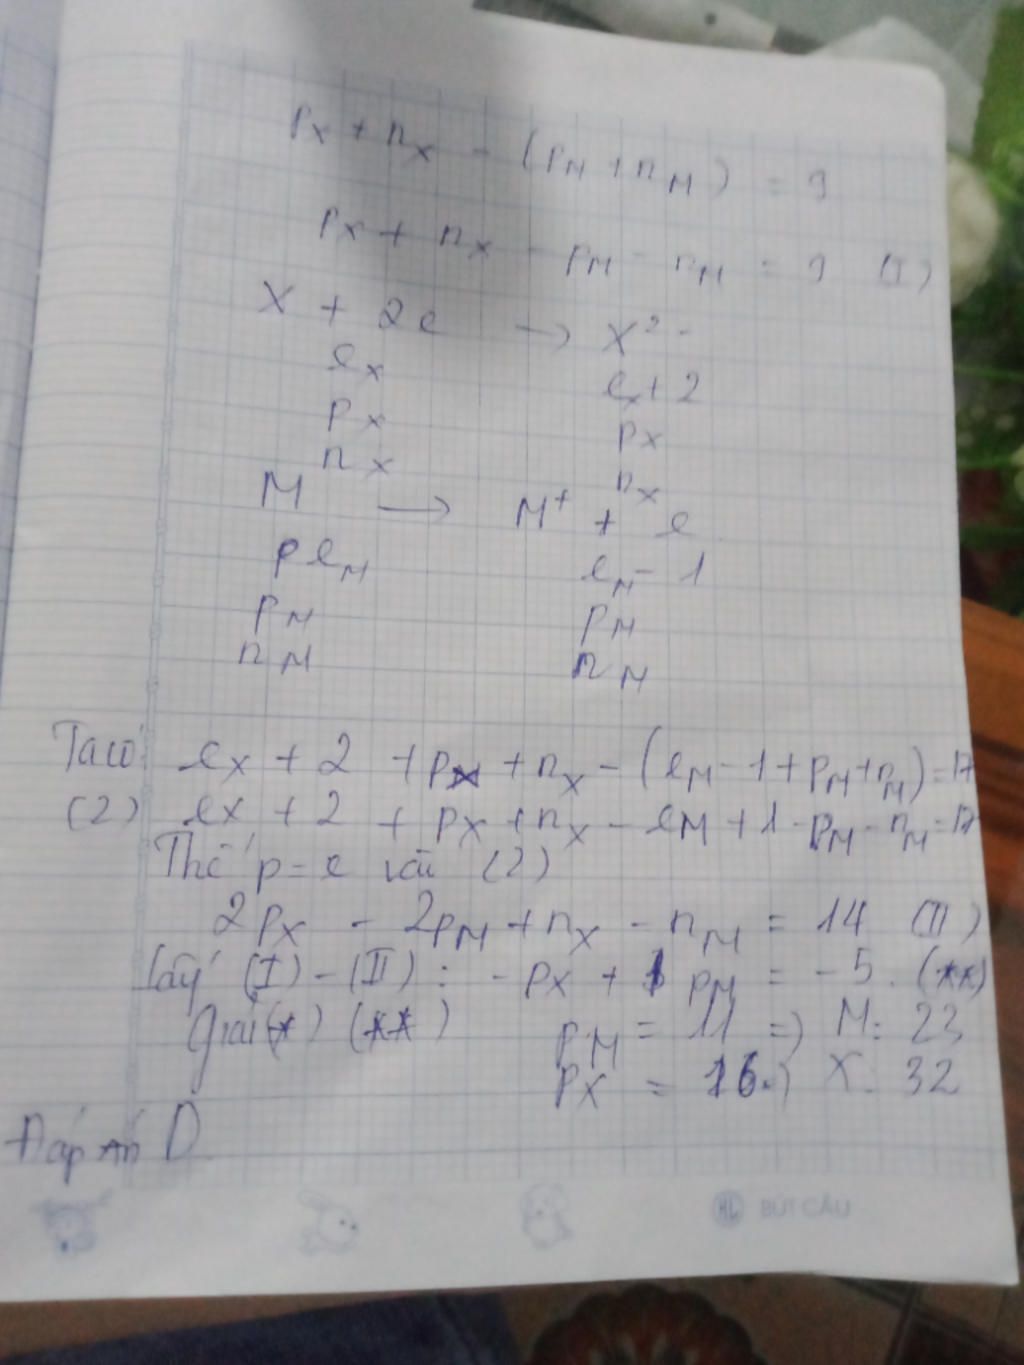 Px + nx - (PM + nM) = 9
Px + nx - PM - nM = 9 (I)
X + 2e → X²⁻
ex ex + 2
Px Px
nx nx
M → M⁺ + e
p eM eM - 1
PM PM
nM nM
Ta có: ex + 2 + Px + nx - (eM - 1 + PM + nM) = 17
(2) ex + 2 + Px + nx - eM + 1 - PM - nM = 17
Thế p = e vào (2)
2Px - 2PM + nx - nM = 14 (II)
Lấy (I) - (II) : - Px + PM = - 5 . (**)
Giải (*) (**) PM = 11 => M: 23
Px = 16 => X: 32
Đáp án D
HL BÚT CÂU